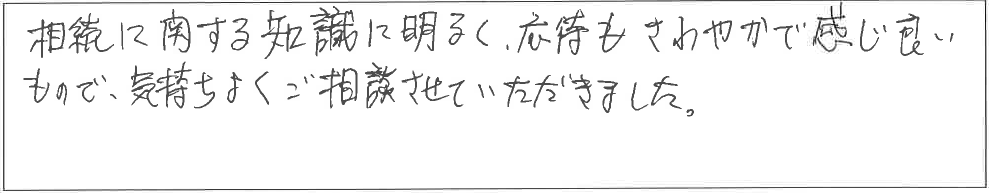 相続に関する知識に明るく、応待もさわやかで感じ良い
もので、気持ちよくご相談させていただきました。